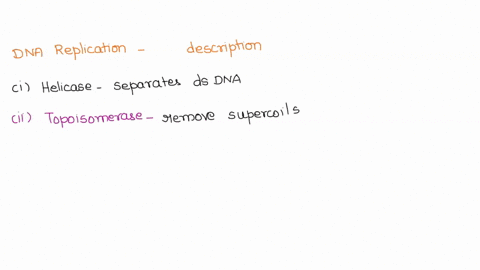 DNA Replication - description
(i) Helicase - separates ds DNA
(ii) Topoisomerase - remove supercoils